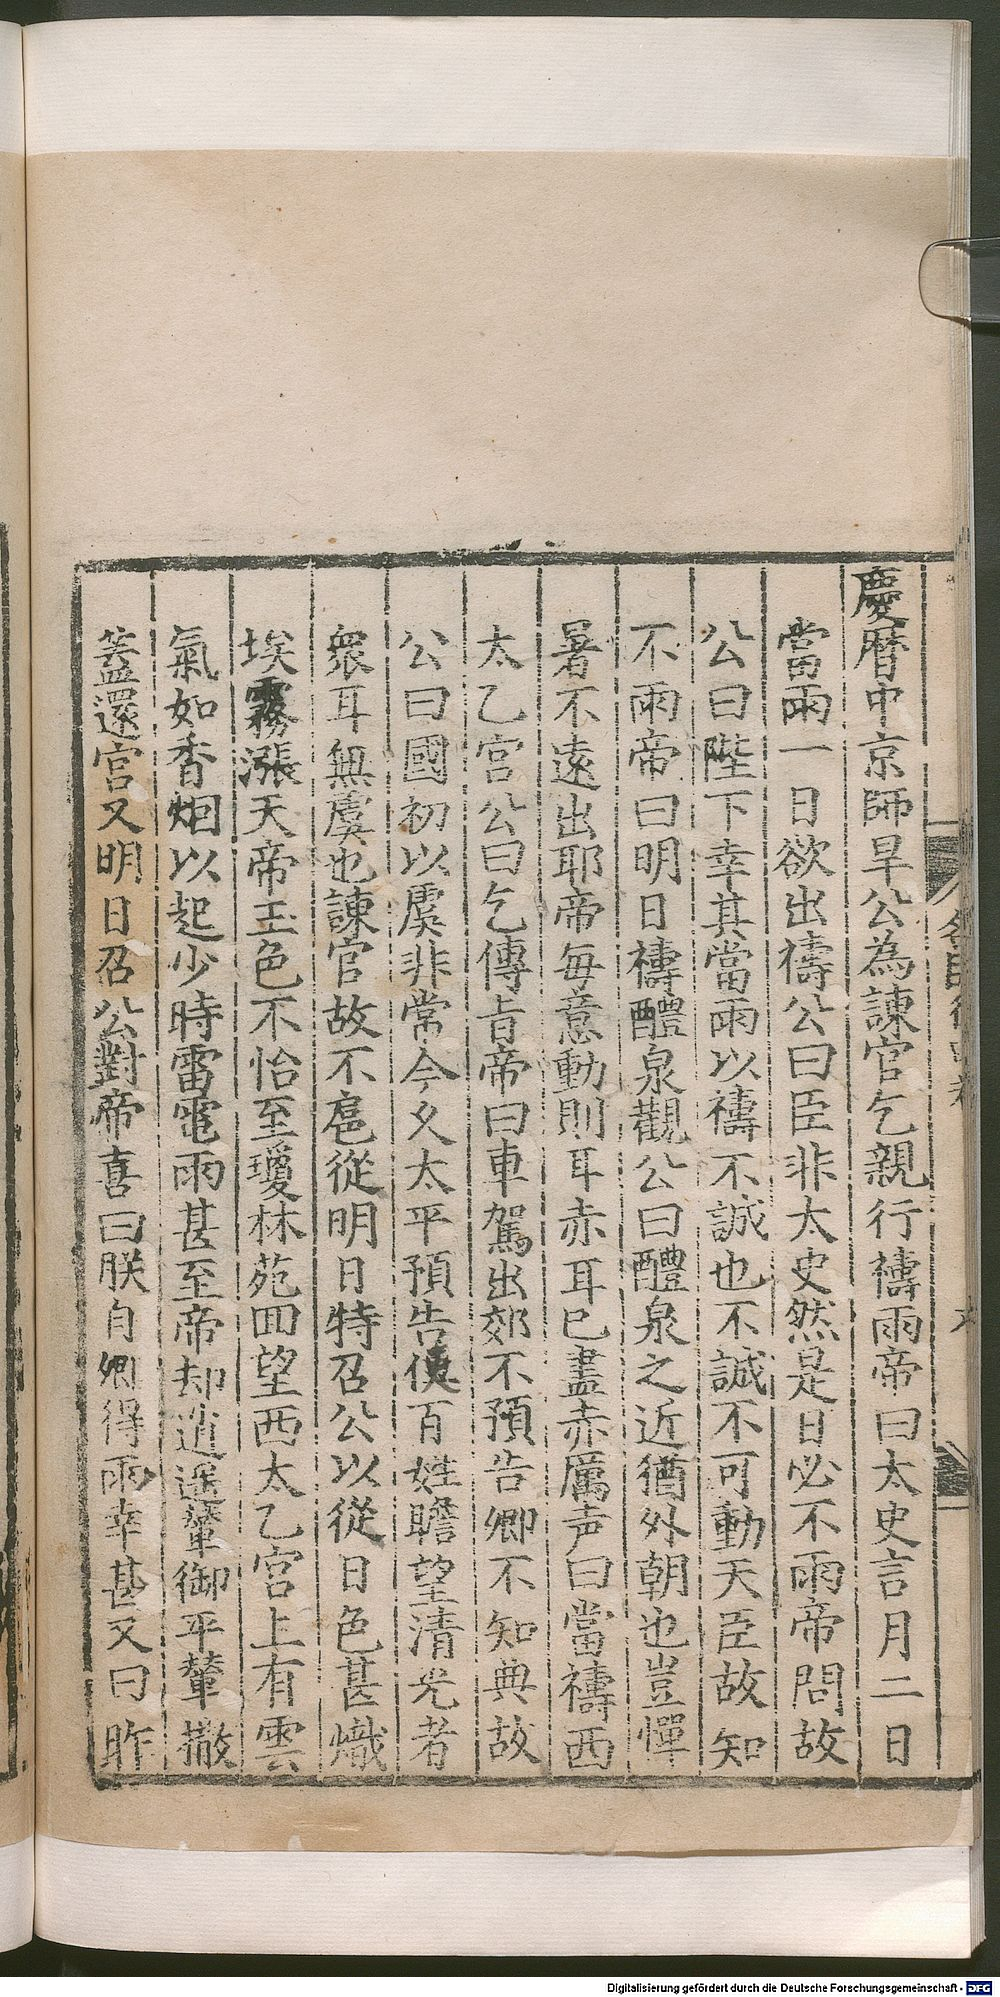 慶曆中京師旱公為諫官乞親行禱雨帝曰太史言月二日
當雨一日欲出禱公曰臣非太史然是日必不雨帝問故
公曰陛下幸其當雨以禱不誠也不誠不可動天臣故知
不雨帝曰明日禱醴泉觀公曰醴泉之近猶外朝也豈憚
暑不遠出耶帝每意動則耳赤耳已盡赤厲声曰當禱西
太乙宮公曰乞傳旨帝曰車駕出郊不預告卿不知典故
公曰國初以虞非常今久太平預告使百姓瞻望清光者
衆耳無虞也諫官故不扈從明日特召公以從日色甚熾
埃霧漲天帝玉色不怡至瓊林苑四望西太乙宮上有雲
氣如香烟以起少時雷電雨甚至帝却逍遥輦御平輦撤
蓋還宮又明日召公對帝喜曰朕自卿得雨幸甚又曰昨
Digitalisierung gefördert durch die Deutsche Forschungsgemeinschaft - DFG